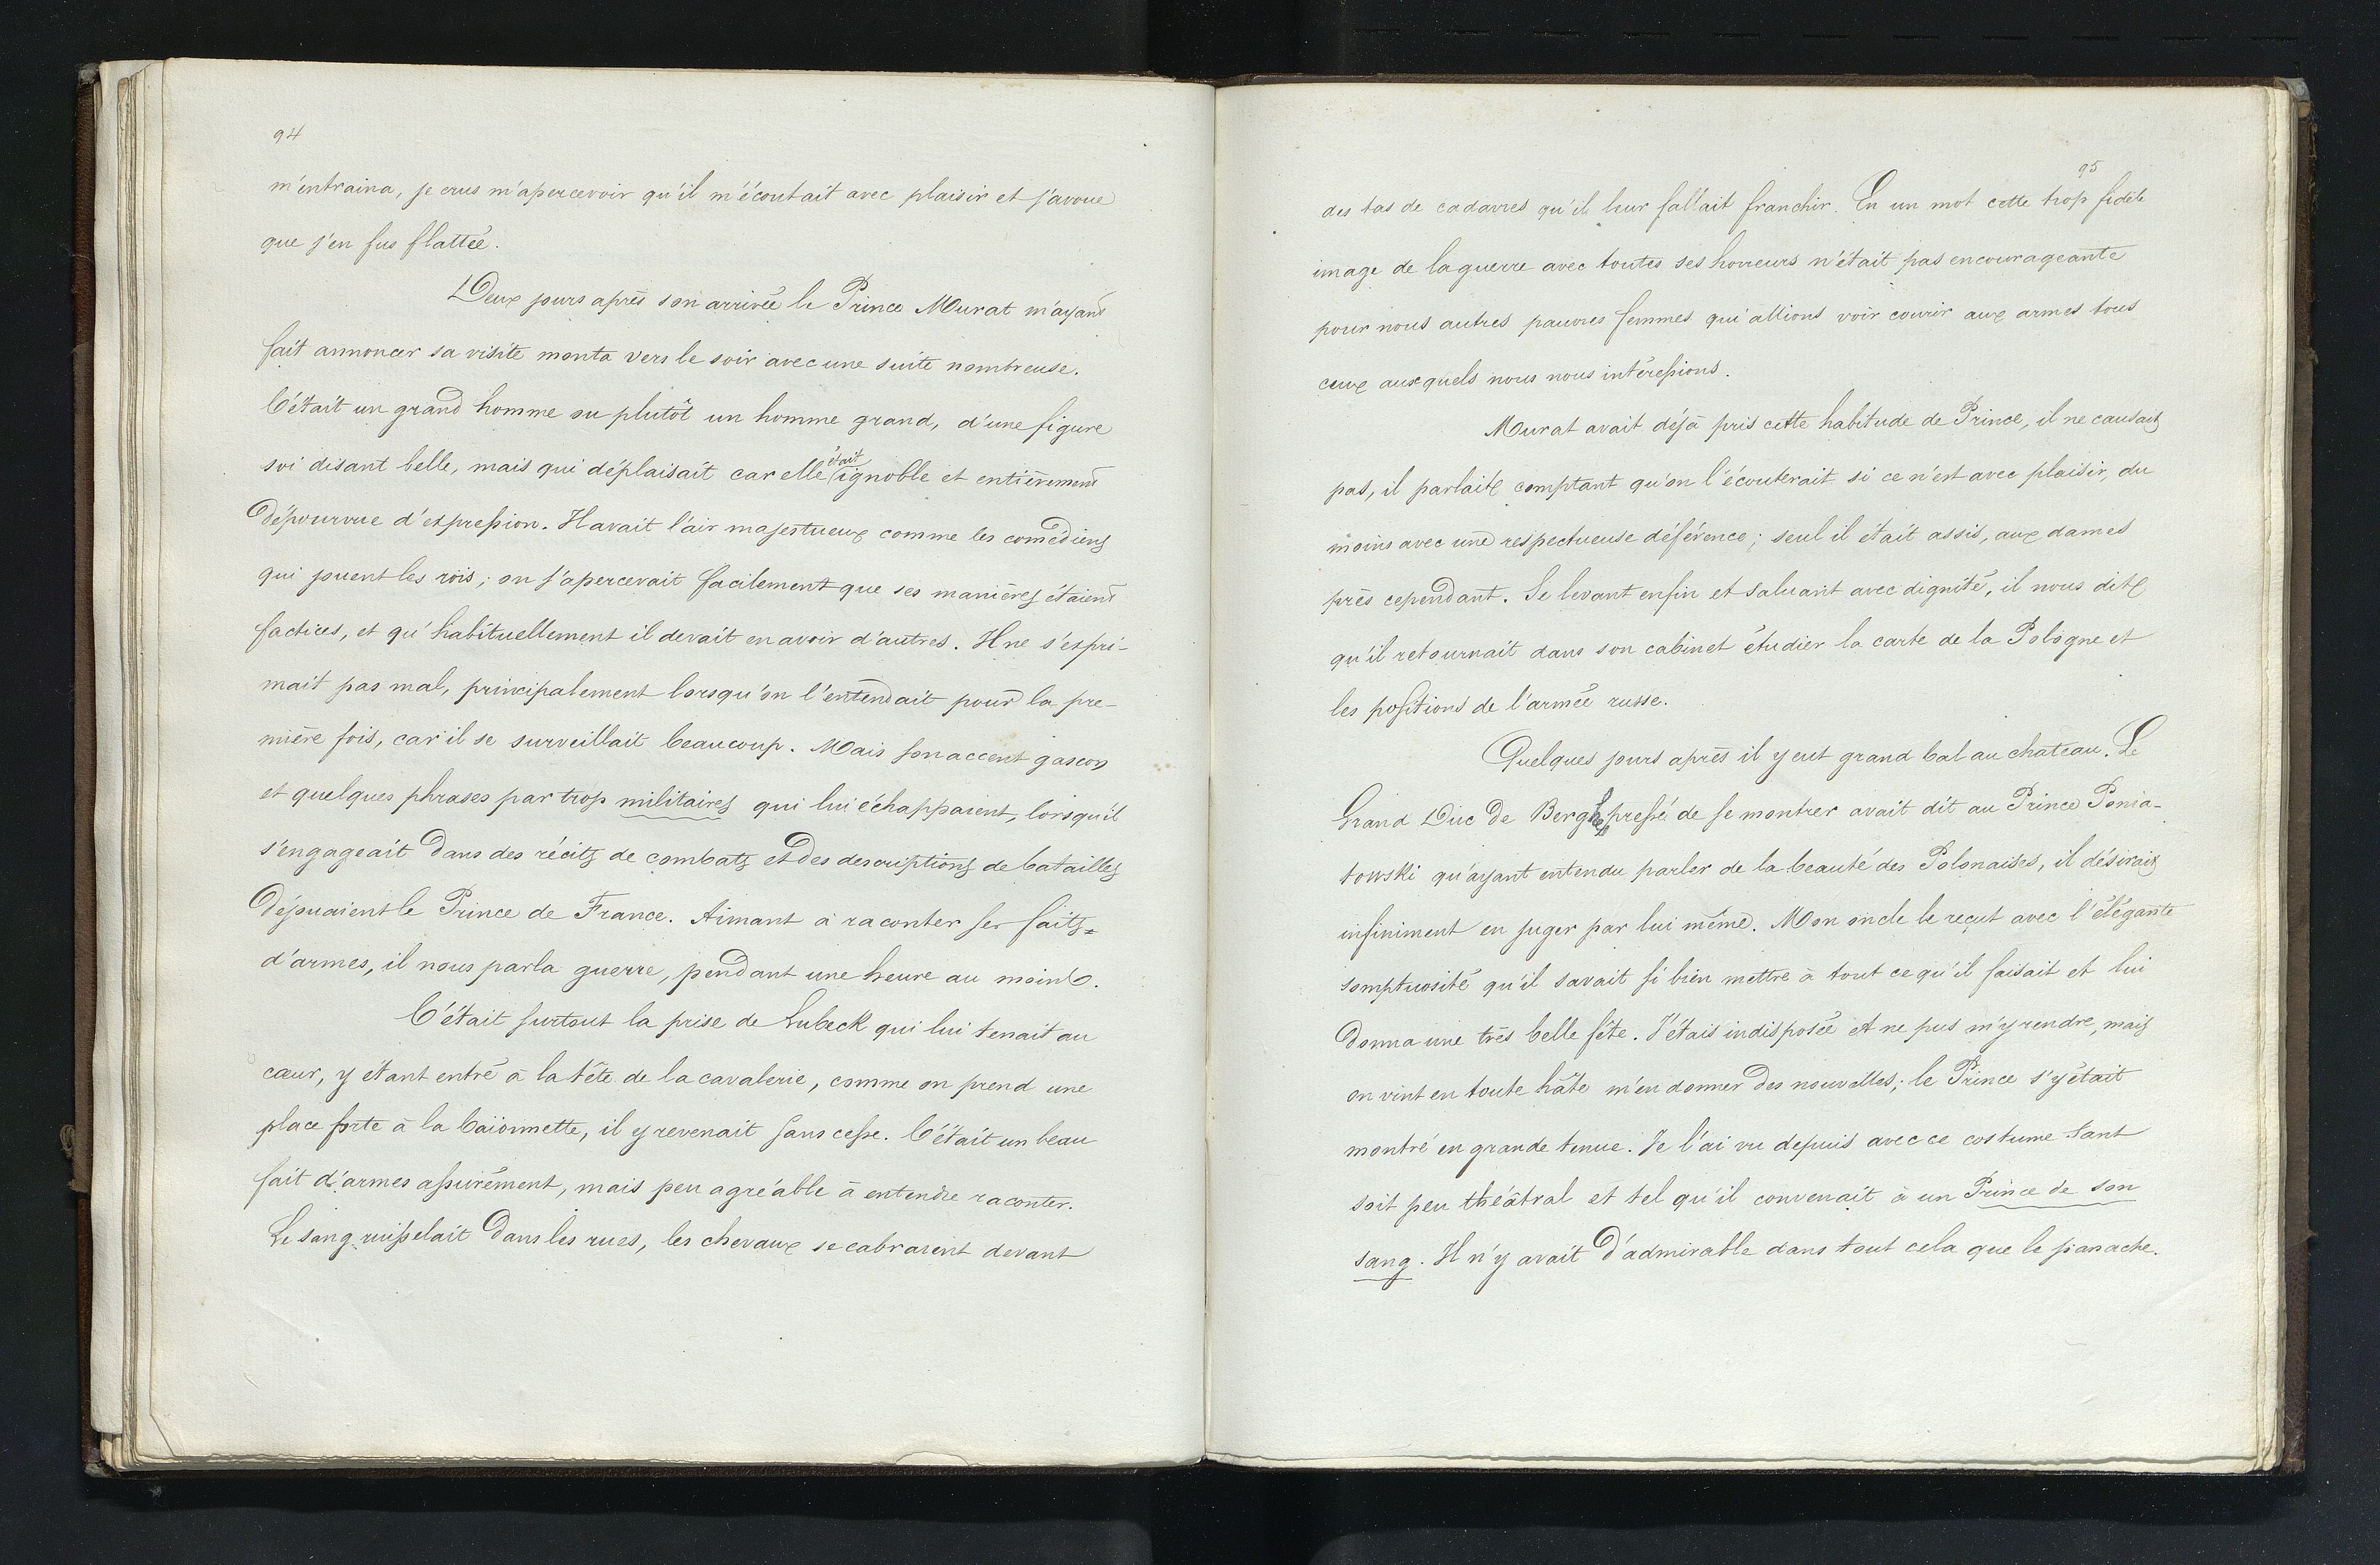 94
m'entraina, je crus m'apercevoir qu'il m'écoutait avec plaisir et j'avoue
que j'en fus flattée.
Deux jours après son arrivée le Prince Murat m'ayant
fait annoncer sa visite monta vers le soir avec une suite nombreuse.
C'était un grand homme ou plutôt un homme grand, d'une figure
soi disant belle, mais qui déplaisait car elle était ignoble et entièrement
dépourvue d'expression. Il avait l'air majestueux comme les comédiens
qui jouent les rois; on s'apercevait facilement que ses manières étaient
factices, et qu'habituellement il devait en avoir d'autres. Il ne s'expri-
mait pas mal, principalement lorsqu'on l'entendait pour la pre-
mière fois, car il se surveillait beaucoup. Mais son accent gascon
et quelques phrases par trop militaires qui lui échappaient, lorsqu'il
s'engageait dans des récits de combats et des descriptions de batailles
déjouaient le Prince de France. Aimant à raconter ses faits-
d'armes, il nous parla guerre, pendant une heure au moins.
C'était surtout la prise de Lubeck qui lui tenait au
cœur, y étant entré à la tête de la cavalerie, comme on prend une
place forte à la baïonnette, il y revenait sans cesse. C'était un beau
fait d'armes assurément, mais peu agréable à entendre raconter.
Le sang ruisselait dans les rues, les chevaux se cabraient devant
95
des tas de cadavres qu'il leur fallait franchir. En un mot cette trop fidèle
image de la guerre avec toutes ses horreurs n'était pas encourageante
pour nous autres pauvres femmes qui allions voir courir aux armes tous
ceux auxquels nous nous intéressions.
Murat avait déjà pris cette habitude de Prince, il ne causait
pas, il parlait comptant qu'on l'écouterait si ce n'est avec plaisir, du
moins avec une respectueuse déférence; seul il était assis, aux dames
près cependant. Se levant enfin et saluant avec dignité, il nous dit
qu'il retournait dans son cabinet étudier la carte de la Pologne et
les positions de l'armée russe.
Quelques jours après il y eut grand bal au chateau. Le
Grand Duc de Berg pressé de se montrer avait dit au Prince Ponia-
towski qu'ayant entendu parler de la beauté des Polonaises, il désirait
infiniment en juger par lui même. Mon oncle le reçut avec l'élégante
somptuosité qu'il savait si bien mettre à tout ce qu'il faisait et lui
donna une très belle fête. J'étais indisposée et ne pus m'y rendre, mais
on vint en toute hâte m'en donner des nouvelles; le Prince s'y était
montré en grande tenue. Je l'ai vu depuis avec ce costume tant
soit peu théâtral et tel qu'il convenait à un Prince de son
sang. Il n'y avait d'admirable dans tout cela que le panache.